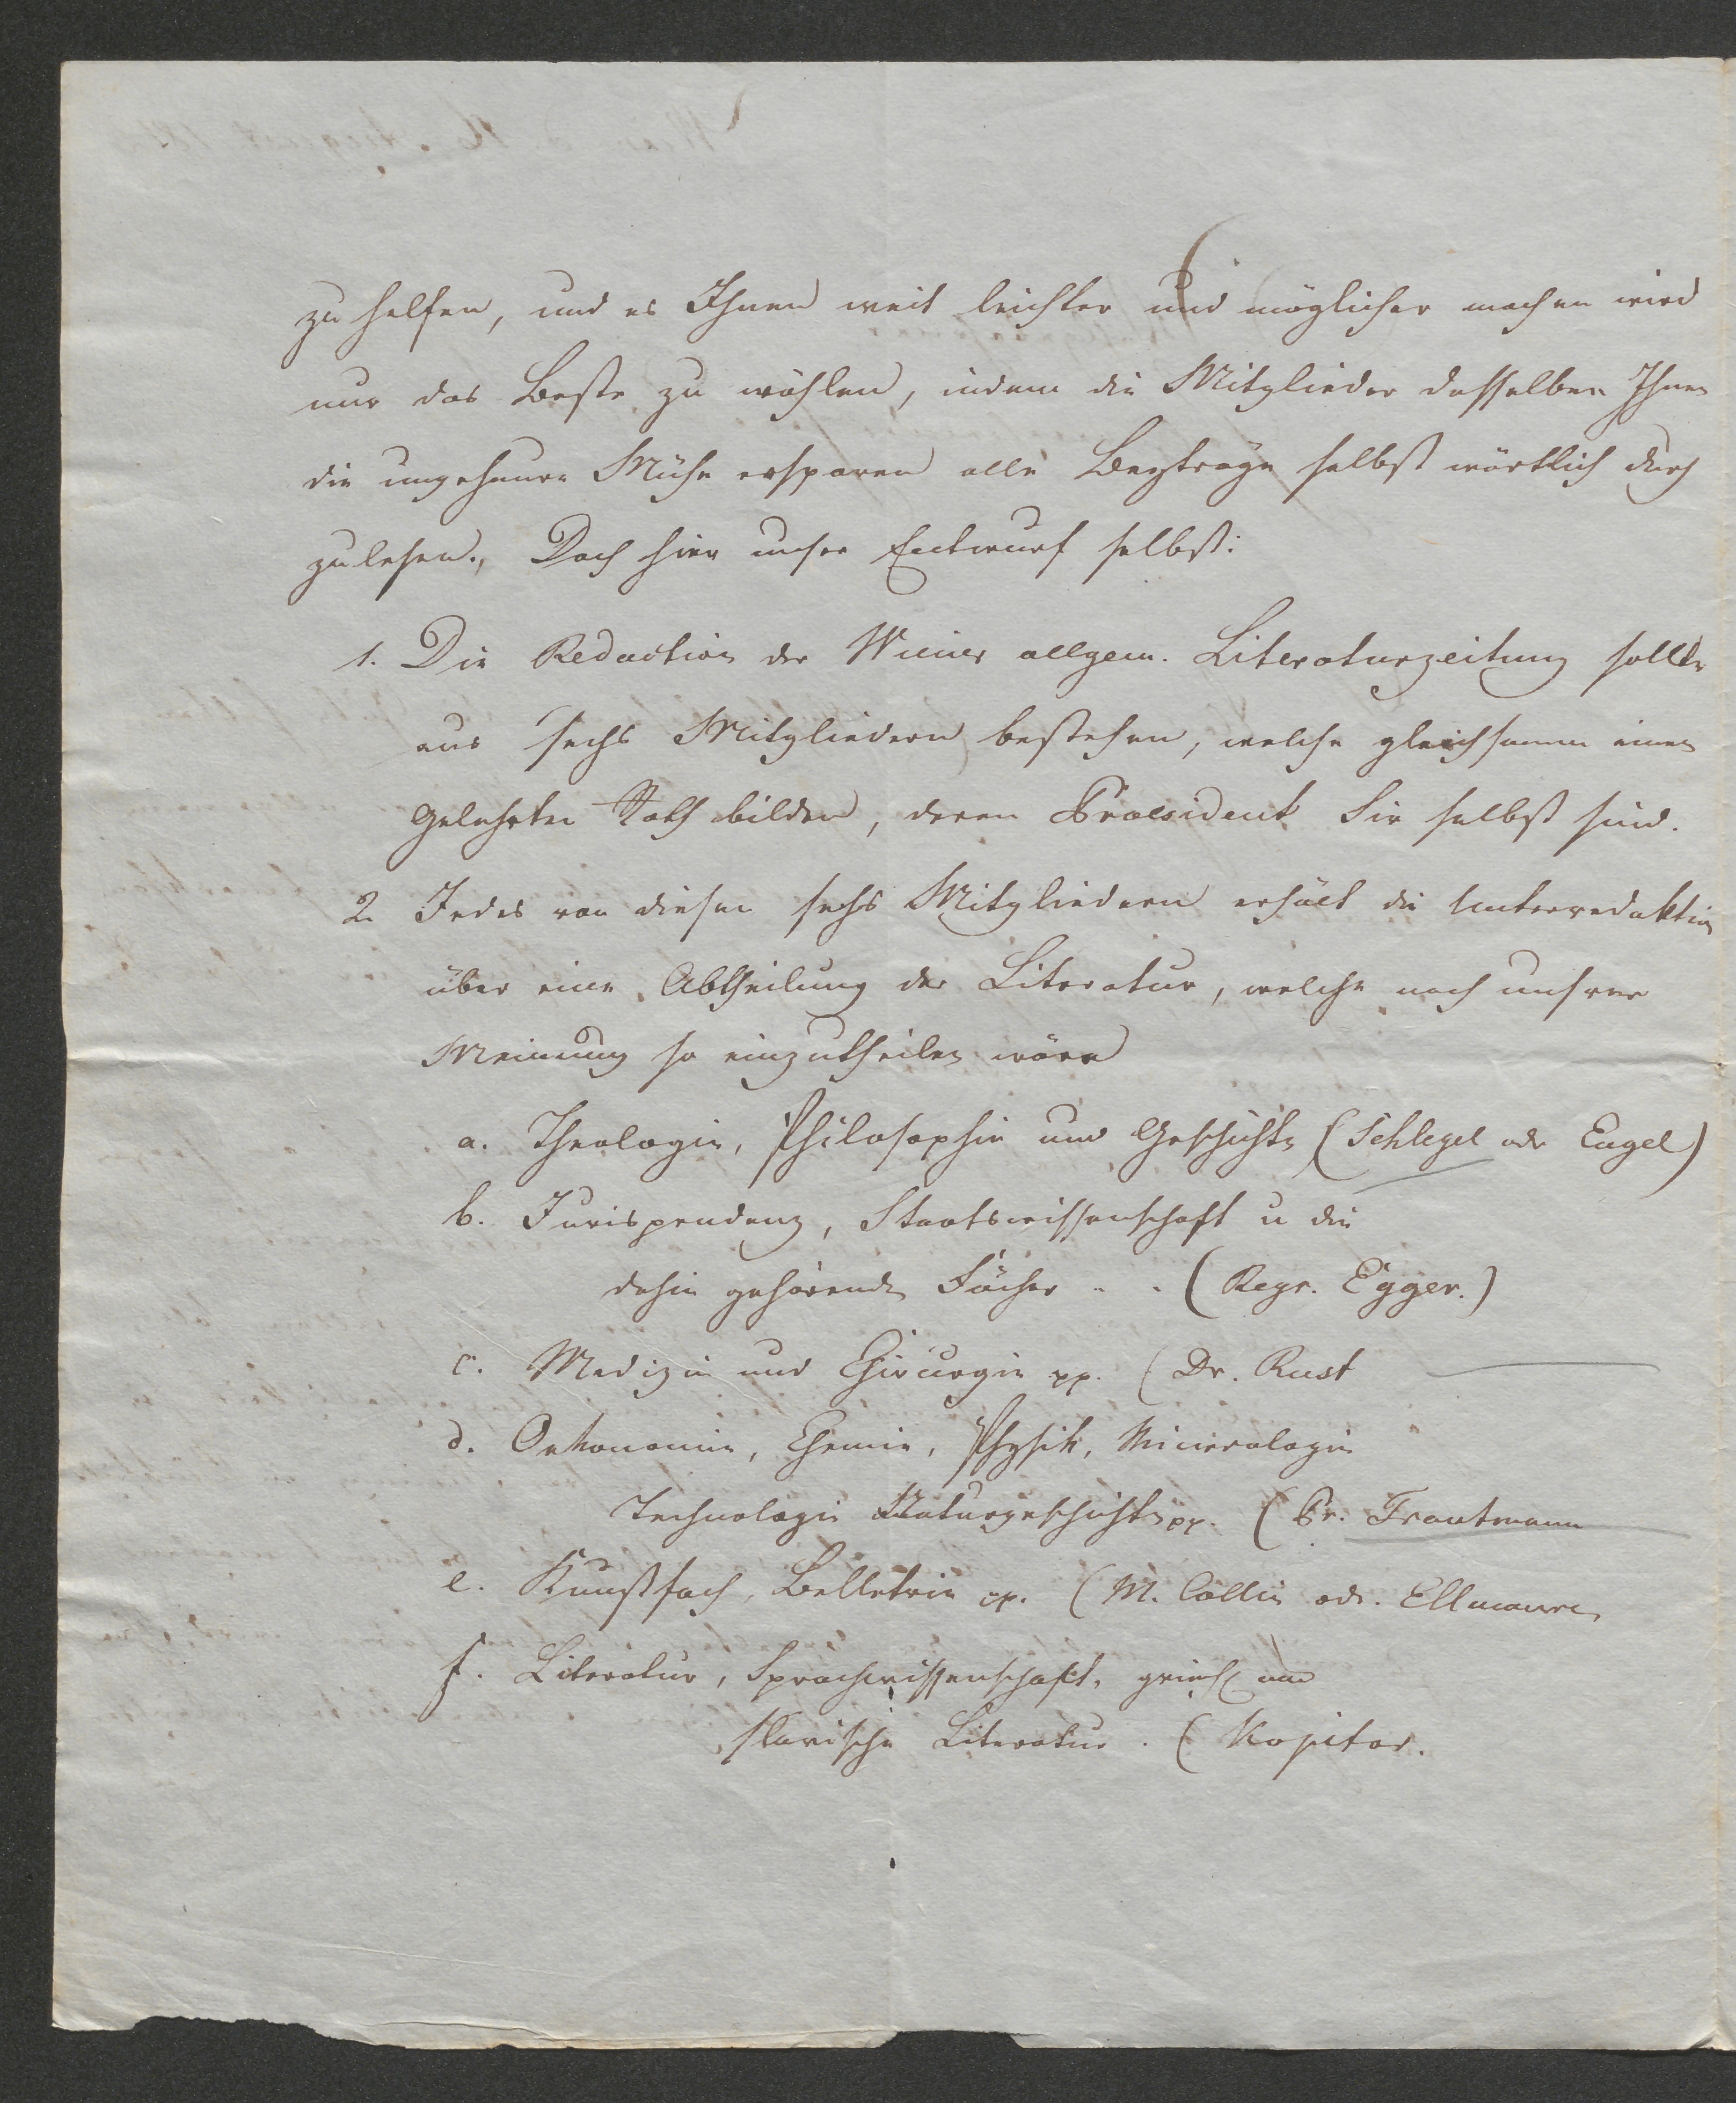 zu helfen, und es Ihnen weit leichter und möglicher machen wird
nur das Beste zu wählen, indem die Mitglieder desselben Ihnen
die ungeheure Mühe ersparen alle Beyträge selbst wörtlich durch
zulesen. Doch hier unser Entwurf selbst:
1. Die Redaction der Wiener allgem. Literaturzeitung sollte
aus sechs Mitgliedern bestehen, welche gleichsamm einen
Gelehrten Rath bilden, deren Praesident Sie selbst sind.
2. Jedes von diesen sechs Mitgliedern erhält die Unterredaktion
über eine Abtheilung der Literatur, welche nach unsrer
Meinung so einzutheilen wäre
a. Theologie, Philosophie und Geschichte (Schlegel oder Engel)
b. Jurisprudenz, Staatswissenschaft u die
dahin gehörende Fächer . . (Regr. Egger.)
c. Medizin und Chirurgie pp. (Dr. Rust
d. Oekonomie, Chemie, Physik, Mineralogie
Technologie Naturgeschichte pp. (Pr. Trautmann
e. Kunstfach, Belletrie pp. (M. Collin od. Ellmaurer
f. Literatur, Sprachwissenschaft, griech und
slavische Literatur . (Kopitar.